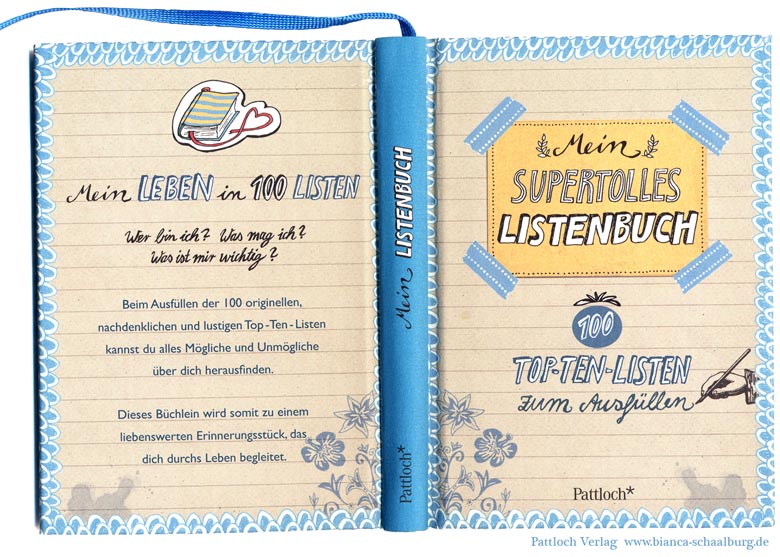 Mein LEBEN in 100 LISTEN
Wer bin ich? Was mag ich?
Was ist mir wichtig?
Beim Ausfüllen der 100 originellen,
nachdenklichen und lustigen Top-Ten-Listen
kannst du alles Mögliche und Unmögliche
über dich herausfinden.
Dieses Büchlein wird somit zu einem
liebenswerten Erinnerungsstück, das
dich durchs Leben begleitet.
Mein LISTENBUCH
Pattloch*
Mein
SUPERTOLLES
LISTENBUCH
100
TOP-TEN-LISTEN
zum Ausfüllen
Pattloch*
Pattloch Verlag www.bianca-schaalburg.de